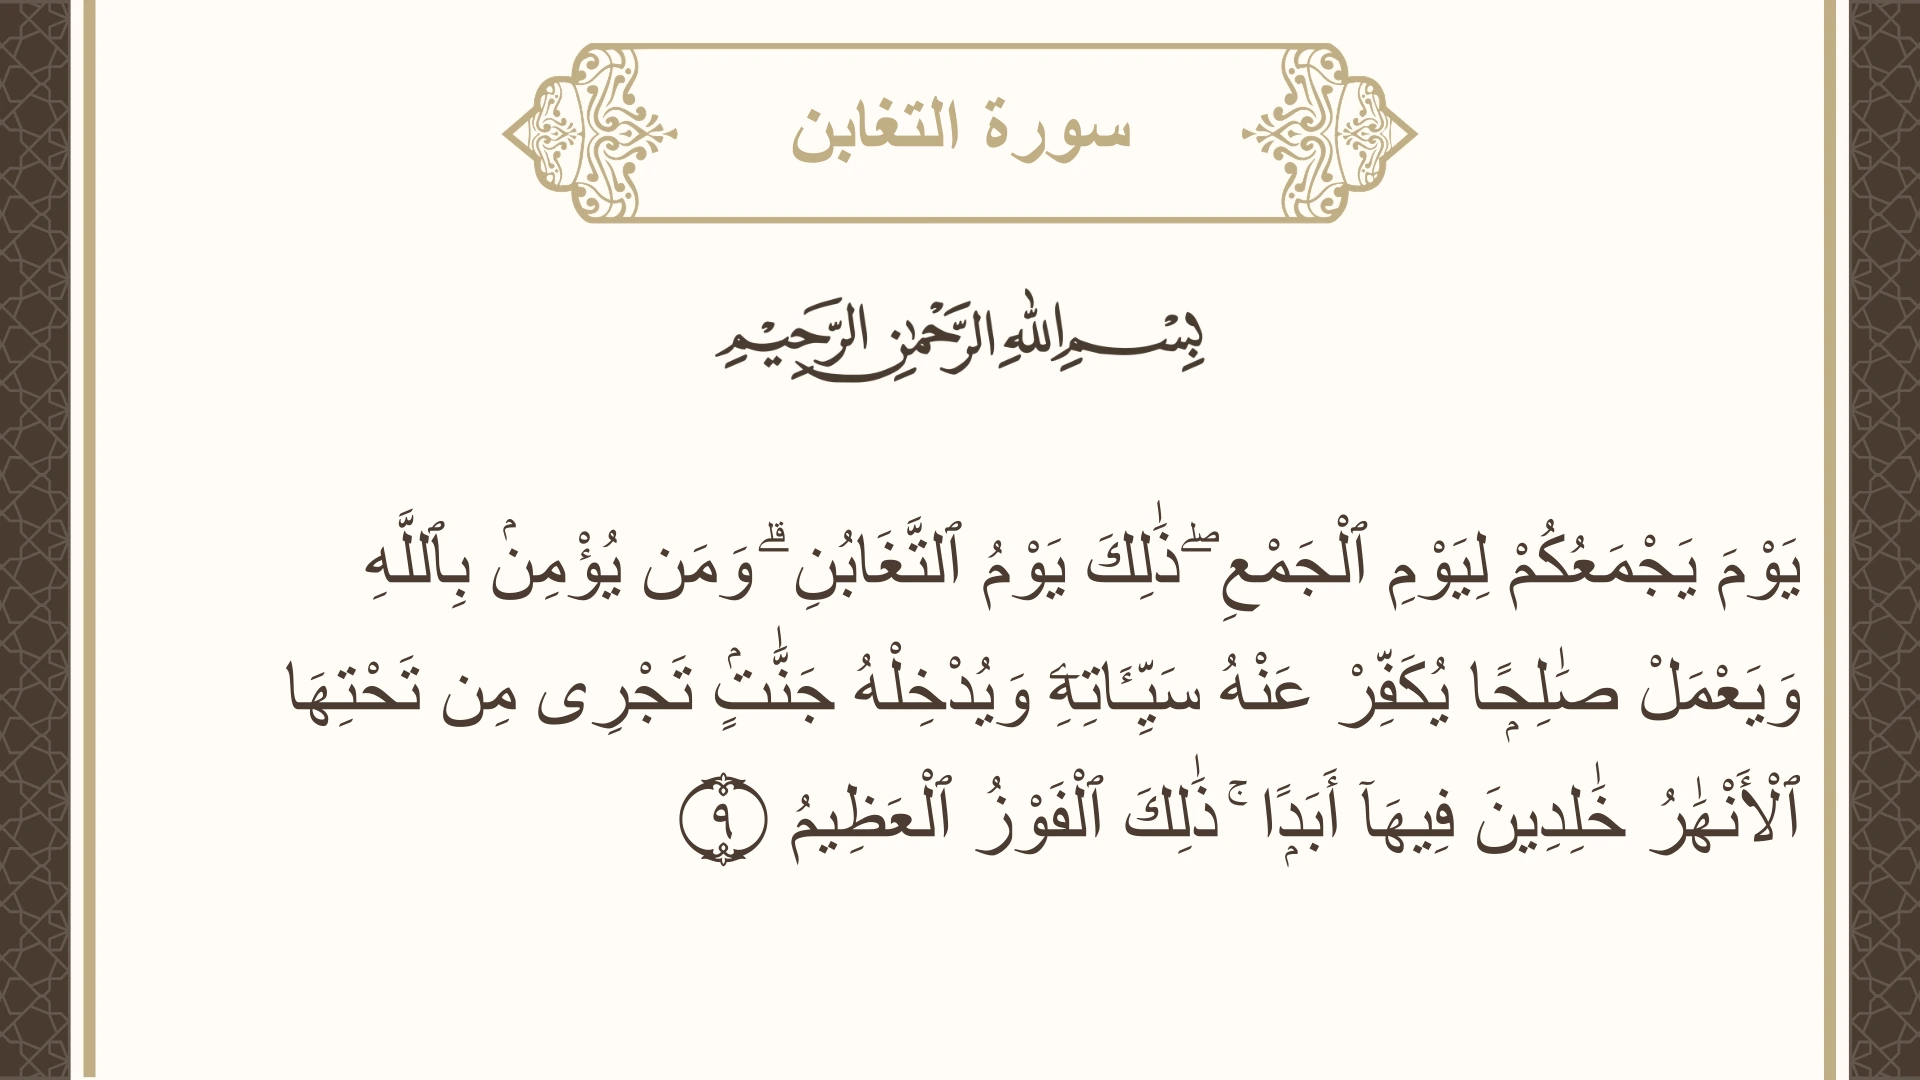 سورة التغابن
بِسْمِ اللهِ الرَّحْمٰنِ الرَّحِيْمِ
يَوْمَ يَجْمَعُكُمْ لِيَوْمِ ٱلْجَمْعِ ۖ ذَٰلِكَ يَوْمُ ٱلتَّغَابُنِ ۗ وَمَن يُؤْمِنۢ بِٱللَّهِ
وَيَعْمَلْ صَـٰلِحًۭا يُكَفِّرْ عَنْهُ سَيِّـَٔاتِهِۦ وَيُدْخِلْهُ جَنَّـٰتٍۢ تَجْرِى مِن تَحْتِهَا
ٱلْأَنْهَـٰرُ خَـٰلِدِينَ فِيهَآ أَبَدًۭا ۚ ذَٰلِكَ ٱلْفَوْزُ ٱلْعَظِيمُ ٩